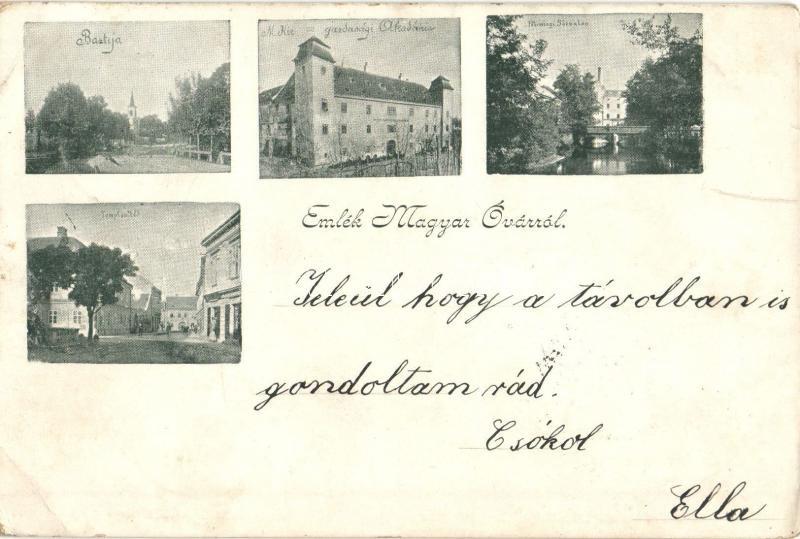 Bastija
M. Kir. gazdasági Akadémia
Emlék Magyar Óvárról.
Jeléül hogy a távolban is
gondoltam rád.
Csókol
Ella